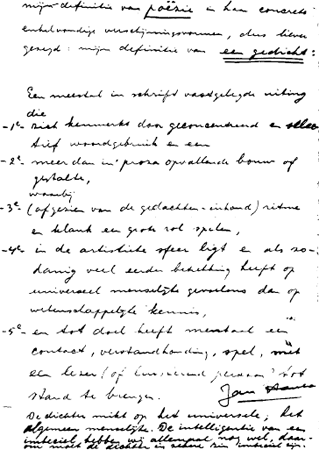 mijn definitie van poëzie in haar concrete
enkelvoudige verschijningsvormen, dus liever
gezegd: mijn definitie van een gedicht:
Een meestal in schrift vastgelegde uiting
die
-1e- zich kenmerkt door geconcentreerd en selec-
tief woordgebruik en een
-2e- meer dan in proza opvallende bouw of
gestalte,
waarbij
-3e- (afgezien van de gedachten-inhoud) ritme
en klank een grote rol spelen,
-4e- in de artistieke sfeer ligt en als zo-
danig veel eerder betrekking heeft op
universeel menselijke gevoelens dan op
wetenschappelijke kennis,
-5e- en tot doel heeft meestal een
contact, verstandhouding, spel, met
een lezer (of luisterend persoon) tot
stand te brengen.
Jan
De dichter mikt op het universele; het
algemeen menselijke. De intelligentie van een
imbeciel hebben wij allemaal nog wel, daar-
om moet de dichter in zekere zin imbeciel zijn.